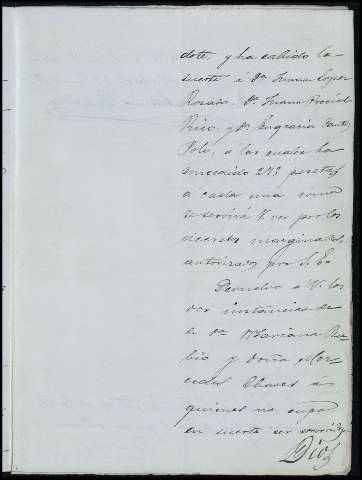 dote, y ha cabido la
suerte á Dª Juana Lopez
Rosado, Dª Juana
Rico, y Dª Engracia
Polo, a las cuales ha
concedido 275 pesetas
á cada una, como
se servirá V. ver por los
decretos marginales,
autorizados por S. E.
Devuelvo a V. las
dos instancias de
Dª Mariana Ru-
bio y doña Mer-
cedes Chaves á
quienes no cupo
en suerte ser
Dios